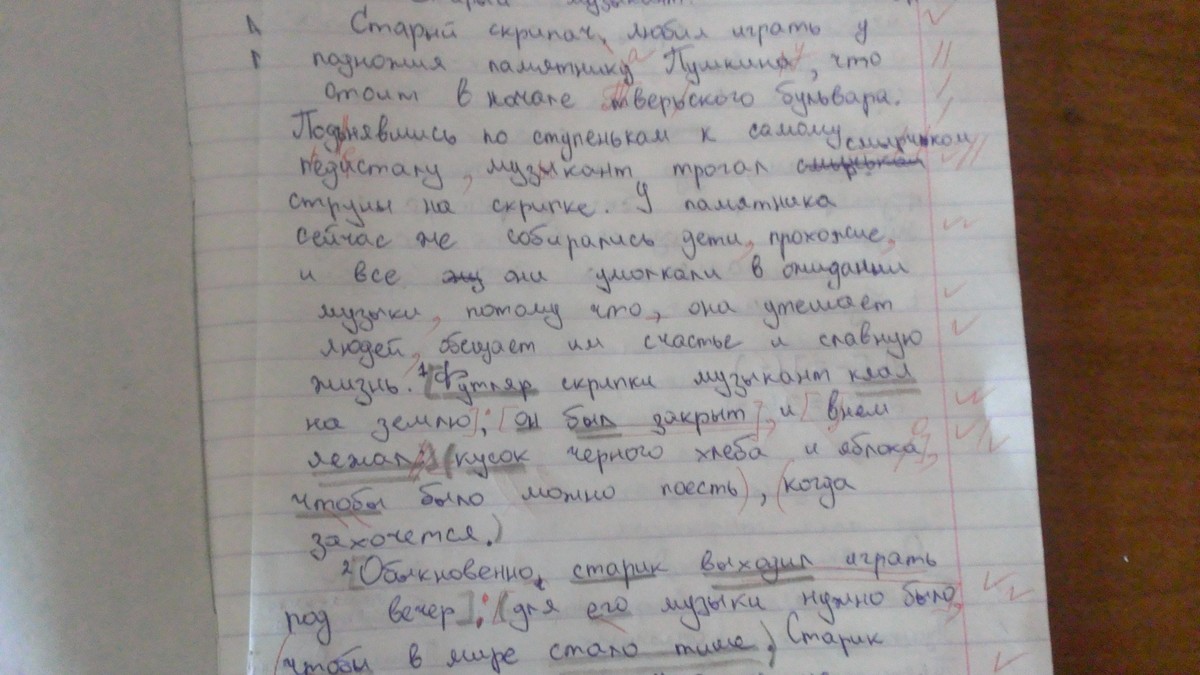 Старый музыкант.
Старый скрипач, любил играть у
подножия памятнику Пушкина, что
стоит в начале тверьского бульвара.
Подьнявшись по ступенькам к самому
смычком
педисталу, музыкант трогал
струны на скрипке. У памятника
сейчас же собирались дети, прохожие,
и все они умолкали в ожидании
музыки, потому что, она утешает
людей, обещает им счастье и славную
жизнь. 1[Футляр скрипки музыкант клал
на землю]; [он был закрыт], и [в нем
лежал (кусок черного хлеба и яблока],
чтобы было можно поесть), (когда
захочется.)
2[Обыкновенно, старик выходил играть
под вечер]: (для его музыки нужно было,
(чтобы в мире стало тише.) Старик